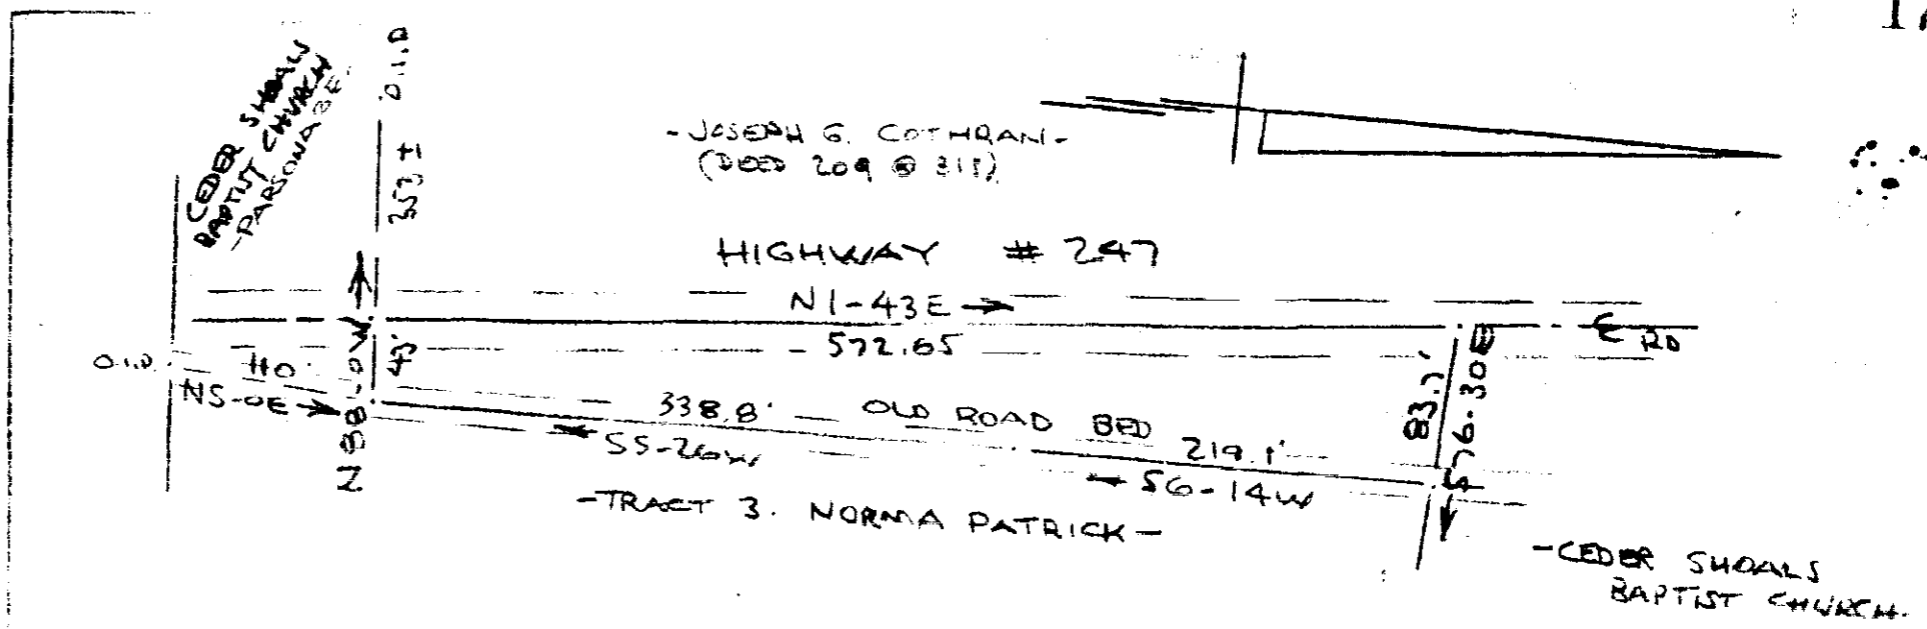 CEDER SHOALS
BAPTIST CHURCH
-PARSONAGE-
353 ± O.I.P
-JOSEPH G. COTHRAN-
(DEED 209 @ 318)
HIGHWAY # 247
N1-43E
572.65
℄ RD
O.I.P.
110'
N5-0E
N88-0W
43'
338.8' OLD ROAD BED 219.1'
S5-26W
S6-14W
83.7'
S76-30E
-TRACT 3. NORMA PATRICK-
-CEDER SHOALS
BAPTIST CHURCH-